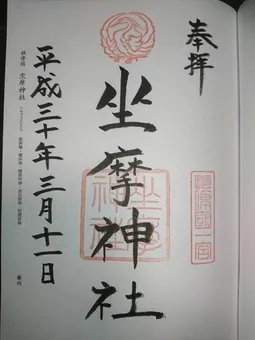 奉拝
摂津國一宮
坐摩神社
坐摩神社
平成三十年三月十一日
摂津国 坐摩神社